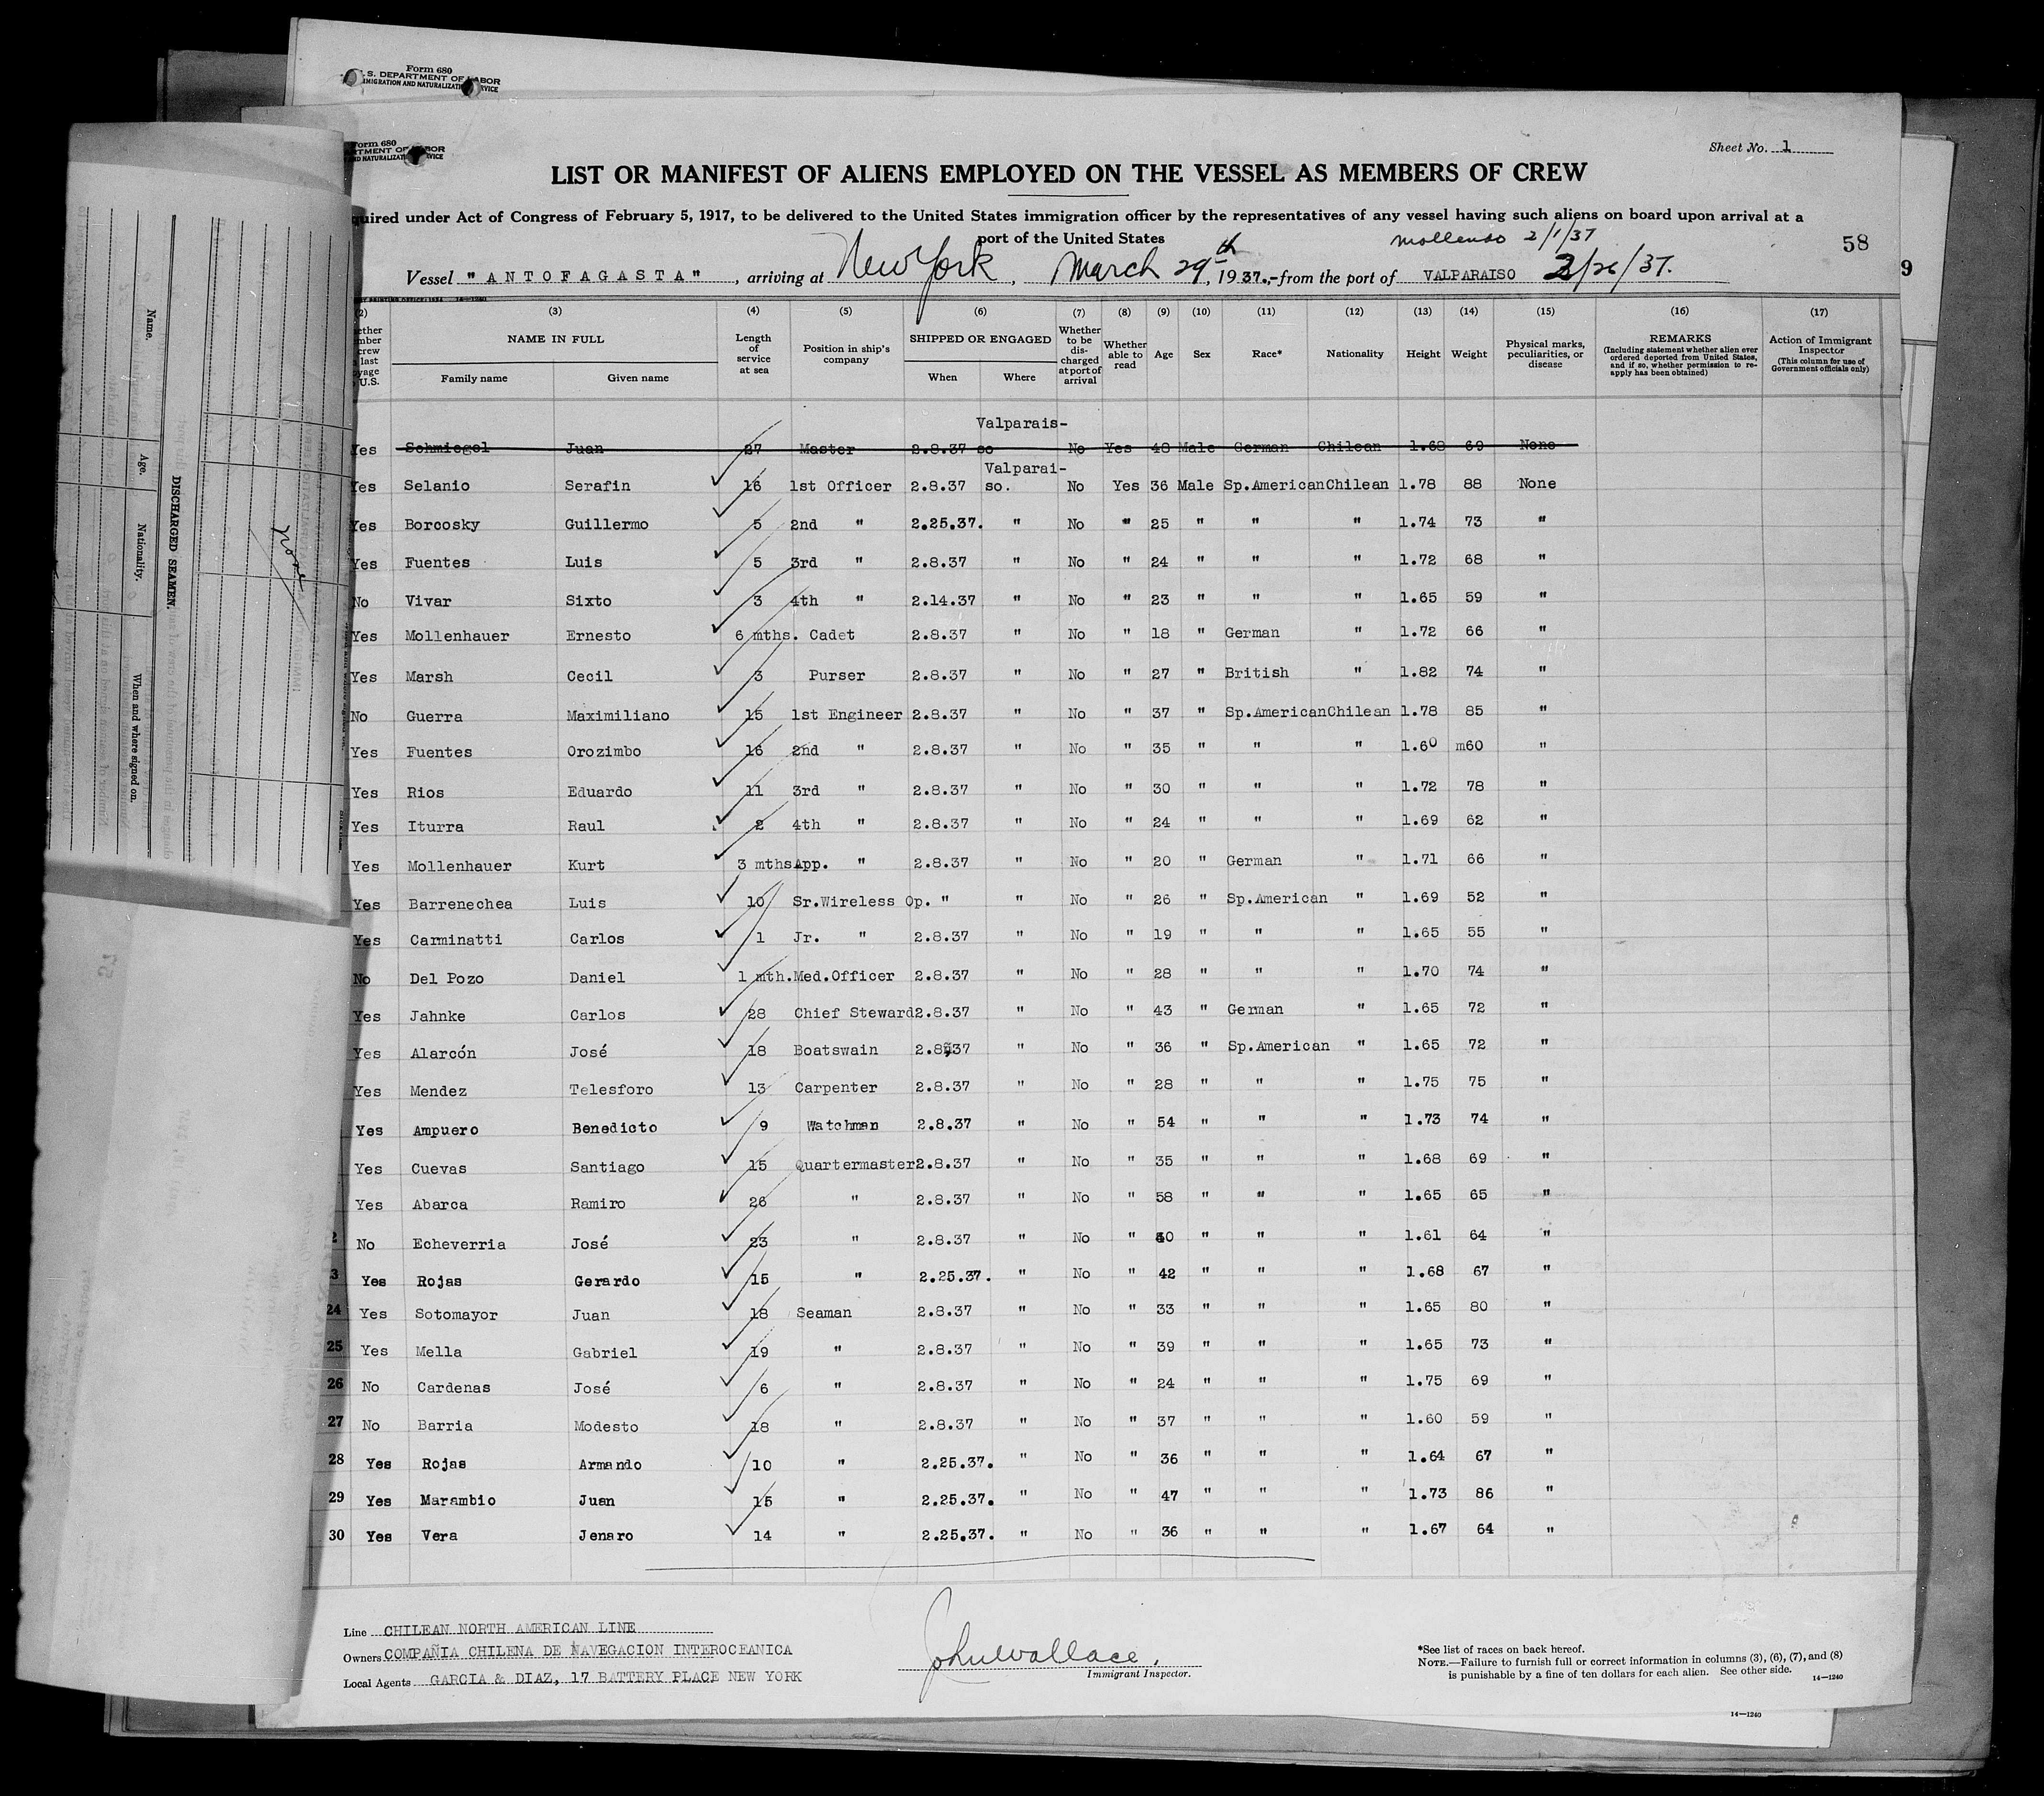 Form 680
U.S. DEPARTMENT OF LABOR
IMMIGRATION AND NATURALIZATION SERVICE
Form 680
Sheet No. 1
LIST OR MANIFEST OF ALIENS EMPLOYED ON THE VESSEL AS MEMBERS OF CREW
quired under Act of Congress of February 5, 1917, to be delivered to the United States immigration officer by the representatives of any vessel having such aliens on board upon arrival at a
port of the United States
Mollendo 2/1/37
58
9
Vessel "ANTOFAGASTA", arriving at New York, March 29th, 1937.,-from the port of VALPARAISO 2/26/37.
(2) (3) (4) (5) (6) (7) (8) (9) (10) (11) (12) (13) (14) (15) (16) (17)
NAME IN FULL
Family name Given name
Length of service at sea
Position in ship's company
SHIPPED OR ENGAGED
When Where
Whether to be discharged at port of arrival
Whether able to read
Age
Sex
Race*
Nationality
Height
Weight
Physical marks, peculiarities, or disease
REMARKS
(Including statement whether alien ever ordered deported from United States, and if so, whether permission to re-apply has been obtained)
Action of Immigrant Inspector
(This column for use of Government officials only)
Valparais-
Yes Schmiegel Juan 27 Master 2.8.37 so No Yes 48 Male German Chilean 1.68 69 None
Valparai-
Yes Selanio Serafin 16 1st Officer 2.8.37 so. No Yes 36 Male Sp.American Chilean 1.78 88 None
Yes Borcosky Guillermo 5 2nd " 2.25.37. " No " 25 " " " 1.74 73 "
Yes Fuentes Luis 5 3rd " 2.8.37 " No " 24 " " " 1.72 68 "
No Vivar Sixto 3 4th " 2.14.37 " No " 23 " " " 1.65 59 "
Yes Mollenhauer Ernesto 6 mths. Cadet 2.8.37 " No " 18 " German " 1.72 66 "
Yes Marsh Cecil 3 Purser 2.8.37 " No " 27 " British " 1.82 74 "
No Guerra Maximiliano 15 1st Engineer 2.8.37 " No " 37 " Sp.American Chilean 1.78 85 "
Yes Fuentes Orozimbo 16 2nd " 2.8.37 " No " 35 " " " 1.60 m60 "
Yes Rios Eduardo 11 3rd " 2.8.37 " No " 30 " " " 1.72 78 "
Yes Iturra Raul 2 4th " 2.8.37 " No " 24 " " " 1.69 62 "
Yes Mollenhauer Kurt 3 mths App. " 2.8.37 " No " 20 " German " 1.71 66 "
Yes Barrenechea Luis 10 Sr.Wireless Op. " " No " 26 " Sp.American " 1.69 52 "
Yes Carminatti Carlos 1 Jr. " 2.8.37 " No " 19 " " " 1.65 55 "
No Del Pozo Daniel 1 mth. Med.Officer 2.8.37 " No " 28 " " " 1.70 74 "
Yes Jahnke Carlos 28 Chief Steward 2.8.37 " No " 43 " German " 1.65 72 "
Yes Alarcón José 18 Boatswain 2.8.37 " No " 36 " Sp.American " 1.65 72 "
Yes Mendez Telesforo 13 Carpenter 2.8.37 " No " 28 " " " 1.75 75 "
Yes Ampuero Benedicto 9 Watchman 2.8.37 " No " 54 " " " 1.73 74 "
Yes Cuevas Santiago 15 Quartermaster 2.8.37 " No " 35 " " " 1.68 69 "
Yes Abarca Ramiro 26 " 2.8.37 " No " 58 " " " 1.65 65 "
2 No Echeverria José 23 " 2.8.37 " No " 40 " " " 1.61 64 "
3 Yes Rojas Gerardo 15 " 2.25.37. " No " 42 " " " 1.68 67 "
24 Yes Sotomayor Juan 18 Seaman 2.8.37 " No " 33 " " " 1.65 80 "
25 Yes Mella Gabriel 19 " 2.8.37 " No " 39 " " " 1.65 73 "
26 No Cardenas José 6 " 2.8.37 " No " 24 " " " 1.75 69 "
27 No Barria Modesto 18 " 2.8.37 " No " 37 " " " 1.60 59 "
28 Yes Rojas Armando 10 " 2.25.37. " No " 36 " " " 1.64 67 "
29 Yes Marambio Juan 15 " 2.25.37. " No " 47 " " " 1.73 86 "
30 Yes Vera Jenaro 14 " 2.25.37. " No " 36 " " " 1.67 64 "
Line CHILEAN NORTH AMERICAN LINE
Owners COMPAÑIA CHILENA DE NAVEGACION INTEROCEANICA
Local Agents GARCIA & DIAZ, 17 BATTERY PLACE NEW YORK
John Wallace.
Immigrant Inspector.
*See list of races on back hereof.
NOTE.—Failure to furnish full or correct information in columns (3), (6), (7), and (8)
is punishable by a fine of ten dollars for each alien. See other side.
14—1240
14—1240
DISCHARGED SEAMEN.
Name.
Age.
Nationality.
When and where signed on.
None